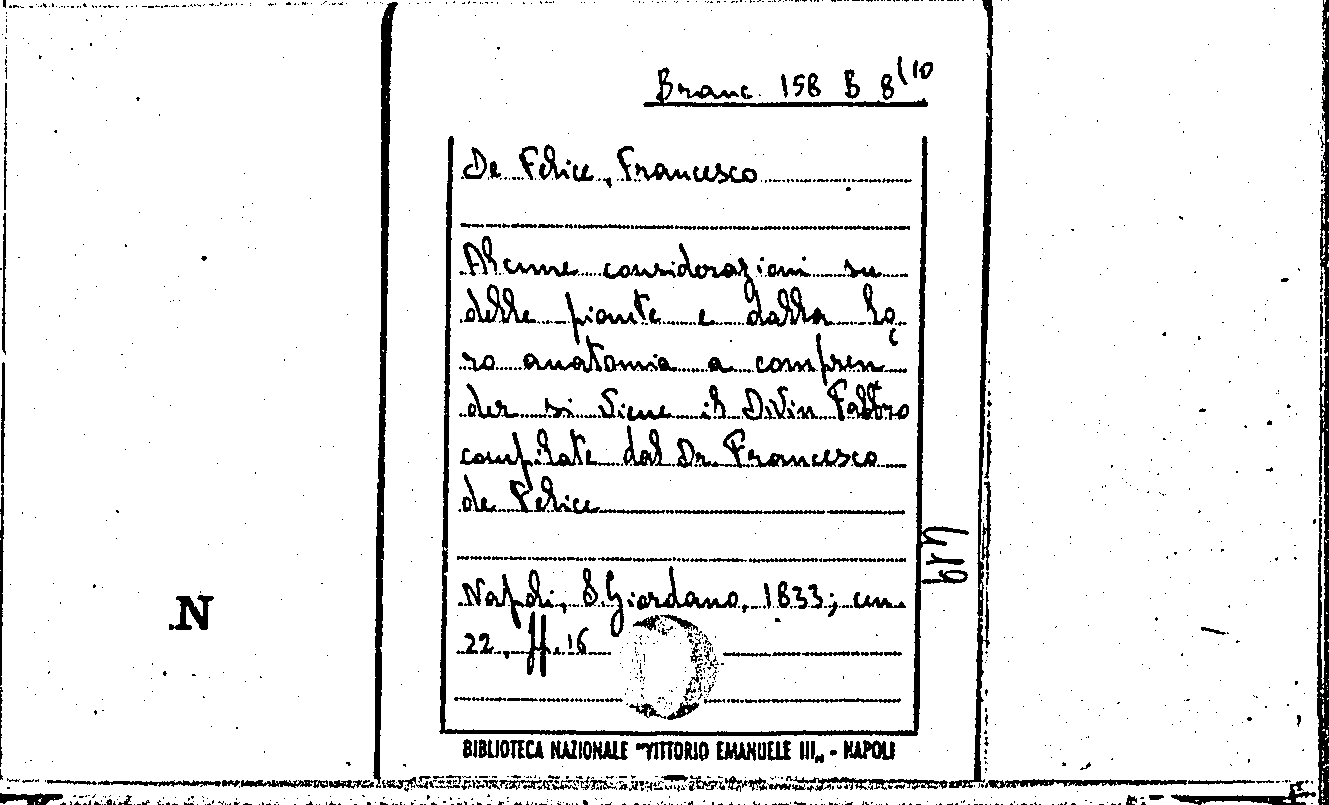 Branc. 158 B 8 (10
De Felice, Francesco
Alcune considerazioni su
delle piante e dalla lo
ro anatomia a compren
der si viene il Divin Fabbro
compilate dal Dr. Francesco
de Felice
419
Napoli, S. Giordano, 1833; cm.
22, pp. 16
.N
BIBLIOTECA NAZIONALE "VITTORIO EMANUELE III„ - NAPOLI